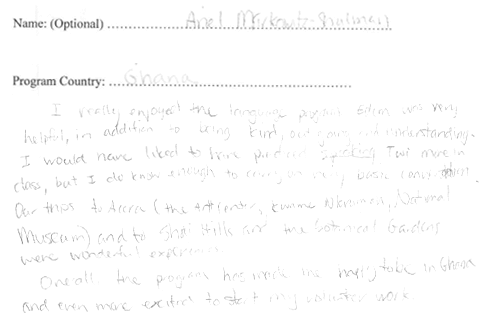 Name: (Optional) Ariel
Program Country: Ghana
I really enjoyed the language program. Edem was very
helpful, in addition to being kind, outgoing and understanding.
I would have liked to have practiced speaking Twi more in
class, but I do know enough to carry on very basic conversation.
Our trips to Accra (the Art Center, Kwame Nkrumah, National
Museum) and to Shai Hills and the Botanical Gardens
were wonderful experiences.
Overall, the program has made me happy to be in Ghana
and even more excited to start my volunteer work